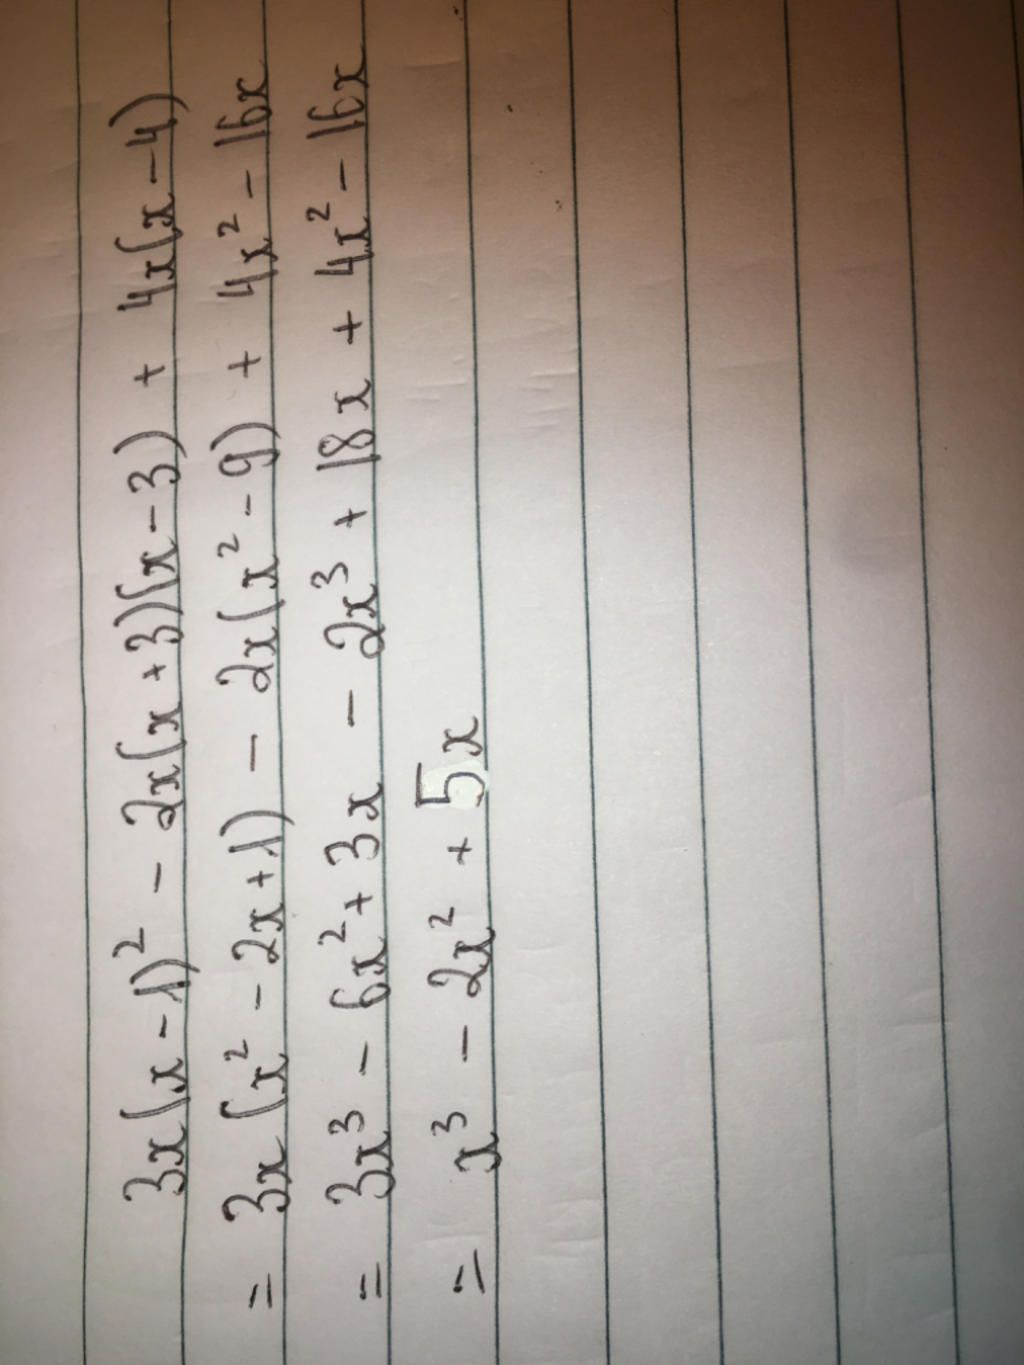 3x(x-1)² - 2x(x+3)(x-3) + 4x(x-4)
= 3x(x² - 2x+1) - 2x(x² - 9) + 4x² - 16x
= 3x³ - 6x² + 3x - 2x³ + 18x + 4x² - 16x
= x³ - 2x² + 5x